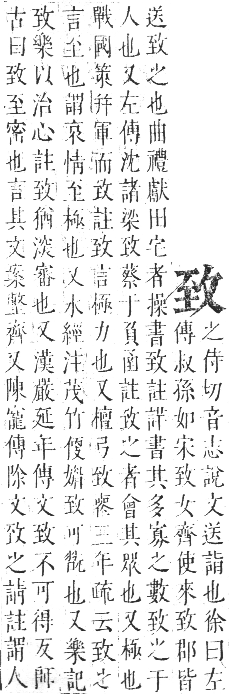 致
之侍切音志說文送詣也徐曰左
傳叔孫如宋致女齊使來致郡皆
送致之也曲禮獻田宅者操書致註詳書其多寡之數致之于
人也又左傳沈諸梁致蔡于負函註致之者會其眾也又極也
戰國策幷軍而致註致言極力也又檀弓致喪三年疏云致之
言至也謂哀情至極也又水經注茂竹便娟致可翫也又樂記
致樂以治心註致猶深審也又漢嚴延年傳文致不可得反師
古曰致至密也言其文案整齊又陳寵傳除文致之請註謂人